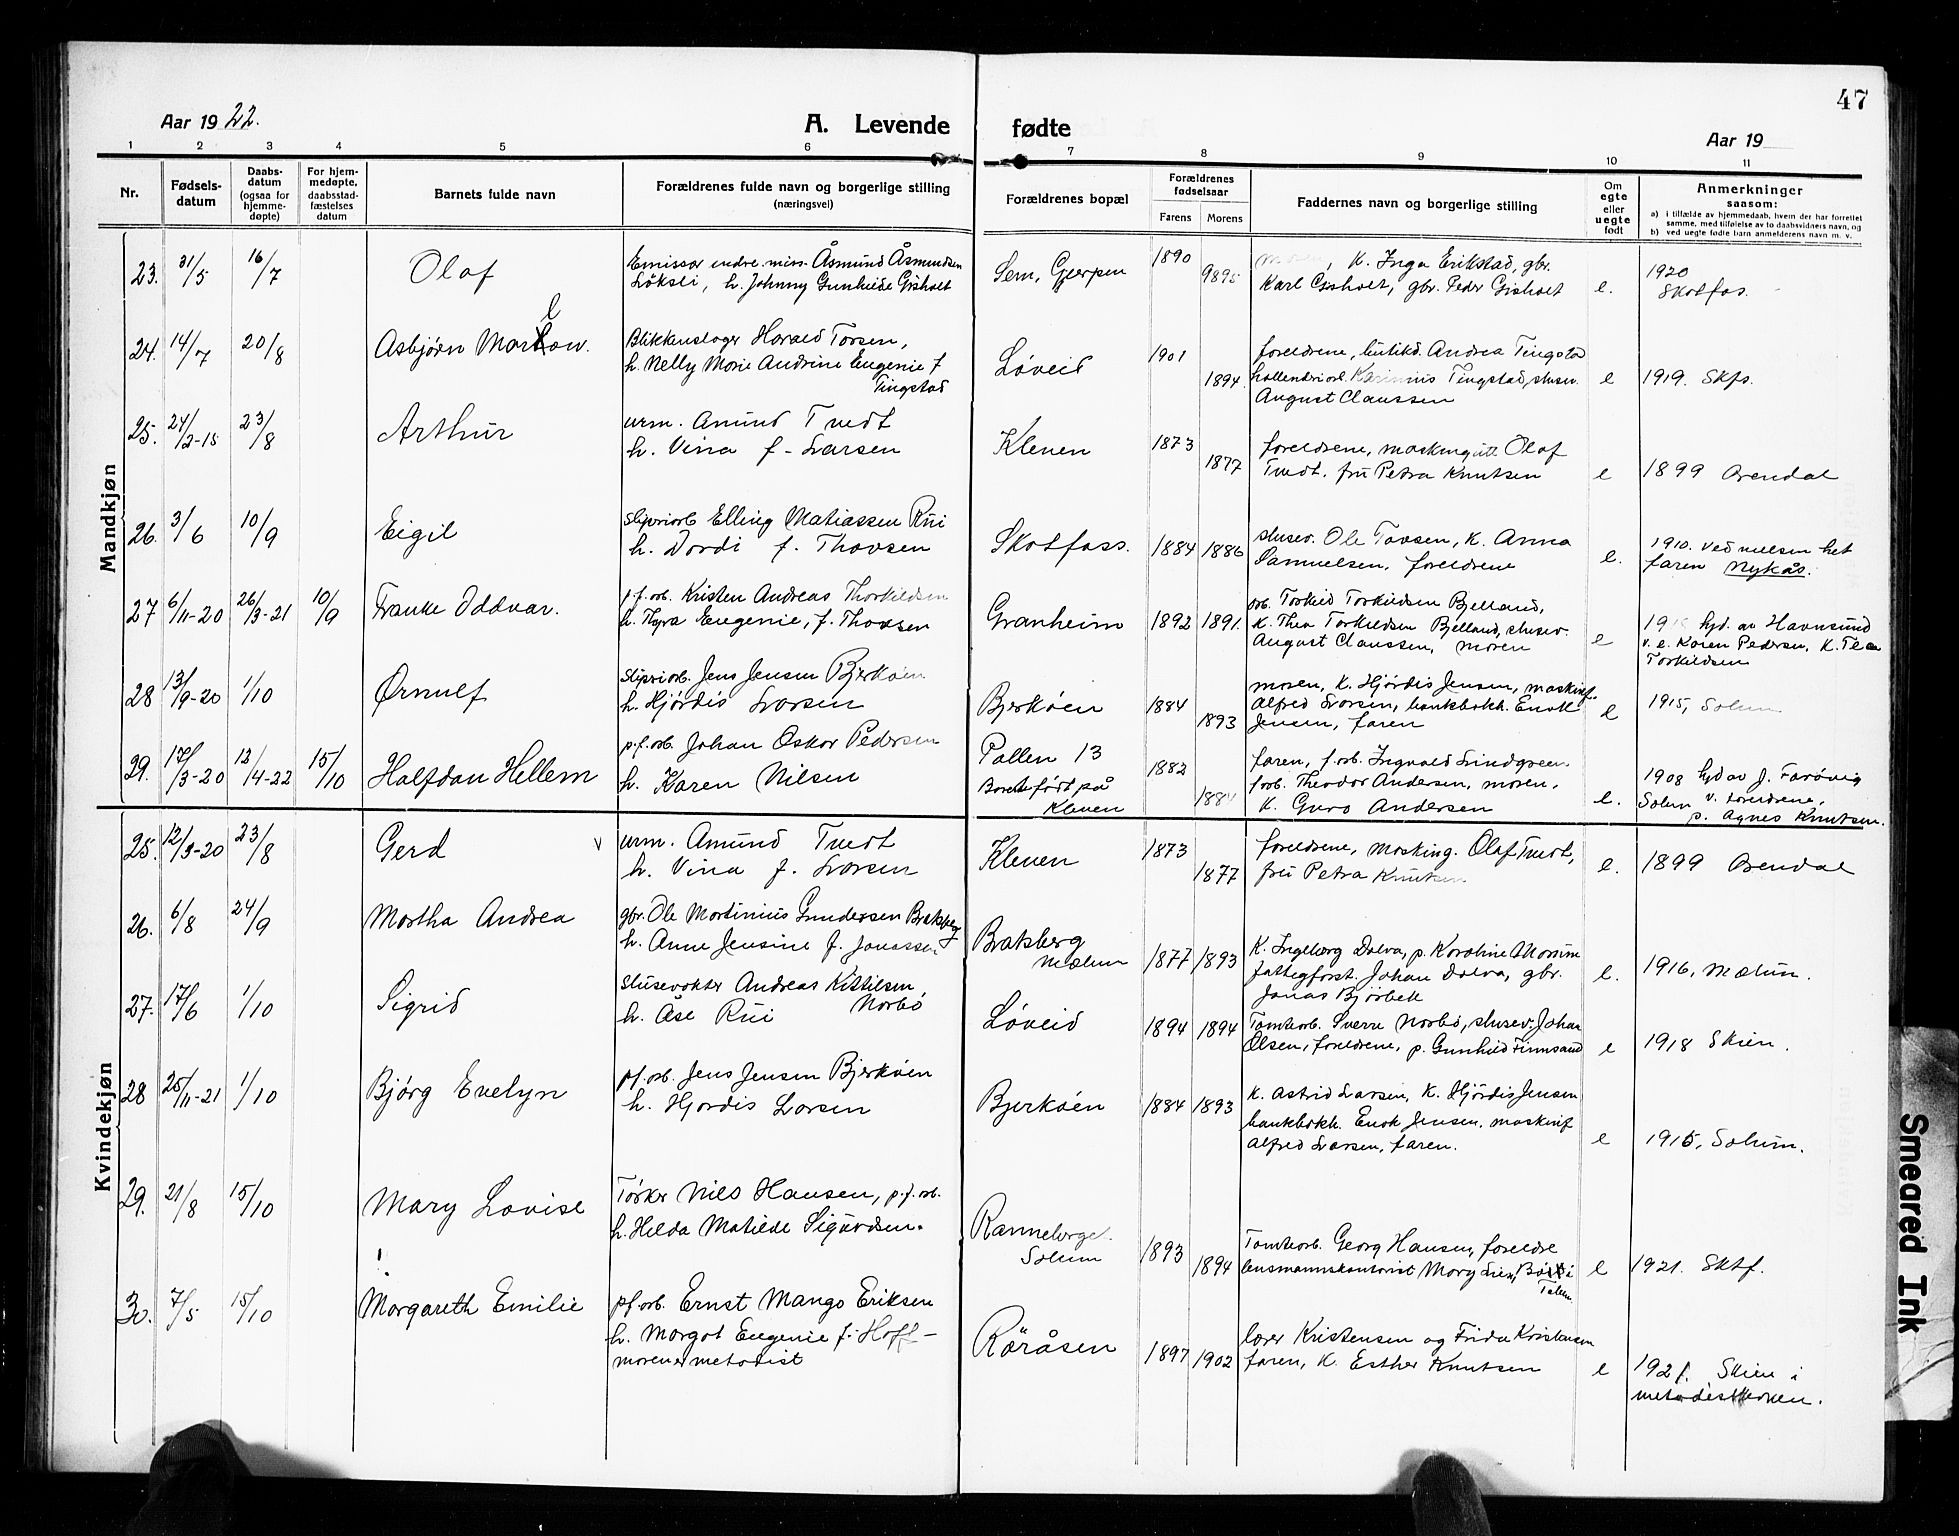 47
Aar 1922.
A. Levende fødte
Aar 19
1 2 3 4 5 6 7 8 9 10 11
Nr.
Fødsels-
datum
Daabs-
datum
(ogsaa for
hjemme-
døpte)
For hjem-
medøpte,
daabsstad-
fæstelses
datum
Barnets fulde navn
Forældrenes fulde navn og borgerlige stilling
(næringsvei)
Forældrenes bopæl
Forældrenes
fødselsaar
Farens Morens
Faddernes navn og borgerlige stilling
Om
egte
eller
uegte
født
Anmerkninger
saasom:
a) i tilfælde av hjemmedaab, hvem der har forrettet
samme, med tilføielse av to daabsvidners navn, og
b) ved uegte fødte barn anmelderens navn m. v.
Mandkjøn
23. 31/5 16/7 Olaf
Emissær indre miss. Åsmund Åsmundsen
Løksli, h. Johnny Gunhilde Gisholt
Sem, Gjerpen 1890 9895
K. Inga Erikstad, gbr.
Karl Gisholt, gbr. Peder Gisholt e.
1920
Skotfos.
24. 14/7 20/8 Asbjørn
Blikkenslager Harald Torsen,
h. Nelly Marie Andrine Eugenie f
Tingstad
Løveid 1901 1894
foreldrene, butikd. Andrea Tingstad
Tingstad, slusev.
August Claussen e 1919. Skfs.
25. 24/2-15 23/8 Arthur
urm. Amund Tvedt
h. Vina f. Larsen
Klenen 1873 1877
foreldrene, maskingutt Olaf
Tvedt. fru Petra Knutsen e 1899 Arendal
26. 3/6 10/9 Eigil
sliperiarb Elling Matiassen Rui
h. Dordi f. Thovsen
Skotfoss. 1884 1886
slusev. Ole Tovsen, K. Anna
Samuelsen, foreldrene e.
1910. Ved vielsen het
faren Nykås.
27 6/11-20 26/3-21 10/9 Franke Oddvar.
p.f.arb. Kristen Andreas Thorkildsen
h. Thyra Eugenie, f. Thovsen
Granheim 1892 1891.
arb. Torkild Torkildsen Bjelland,
K. Thea Torkildsen Bjelland, slusev.
August Claussen, moren e
hjd. av Havnsund
v. e. Karen Pedersen, K. Tea
Torkildsen
28 13/9-20 1/10 Ørnulf
sliperiarb. Jens Jensen Bjerkøen
h. Hjørdis Larsen
Bjerkøen 1884 1893
moren, K. Hjørdis Jensen, maskinf.
Alfred Larsen, bankbokh. Enok
Jensen, faren e 1915, Solum
29. 17/3-20 12/4-22 15/10 Halfdan Hellem
p.f.arb. Johan Oskar Pedersen
h. Karen Nilsen
Pollen 13
Barnet født på
Klenen 1882 1884
faren, f.arb. Ingvald Lindgren.
farb. Theodor Andersen, moren,
K. Guro Andersen e.
1908 hjd av J. Farövig
Solum v. foreldrene,
p. Agnes Knutsen.
Kvindekjøn
25. 12/3-20 23/8 Gerd v
urm. Amund Tvedt
h. Vina f. Larsen
Klenen 1873 1877
foreldrene, masking. Olaf Tvedt,
fru Petra Knutsen e. 1899 Arendal
26. 6/8 24/9 Martha Andrea
gbr. Ole Martinius Gundersen Braksberg
h. Anne Jensine f. Jonassen
Braksberg
Mælum 1877 1893
K. Ingeborg Dolva, p. Karoline
fattigforst. Johan Dolva, gbr.
Jonas Bjørbek e. 1916, Mælum.
27. 17/6 1/10 Sigrid
Slusevokter Andreas Kittilsen
Norbø
h. Åse Rui
Løveid 1894 1894
Tomtearb. Sverre Norbø, slusev. Johan
Olsen, foreldrene, p. Gunhild Finnsand e 1918 Skien.
28 25/11-21 1/10 Bjørg Evelyn
pf.arb. Jens Jensen Bjerkøen
h. Hjordis Larsen
Bjerkøen 1884 1893
K. Astrid Larsen, K. Hjördis Jensen
bankbokh. Enok Jensen, maskinf
Alfred Larsen, faren. e 1915, Solum.
29. 21/8 15/10 Mary Lovise
Törker Nils Hansen, p.f.arb.
h. Helda Matilde Sigurdsen.
Solum 1893 1894
Tomtearb. Georg Hansen, foreldre
lensmannskontorist Mary Lien, e 1921. Sktf.
30. 7/5 15/10 Margareth Emilie
pf.arb. Ernst Mango Eriksen
h. Margot Eugenie f. Hoff -
moren er metodist
Röråsen 1897 1902
lærer Kristensen og Frida Kristensen
faren, K. Esther Knutsen e
1921. Skien i
metodistkirken.
Smeared Ink